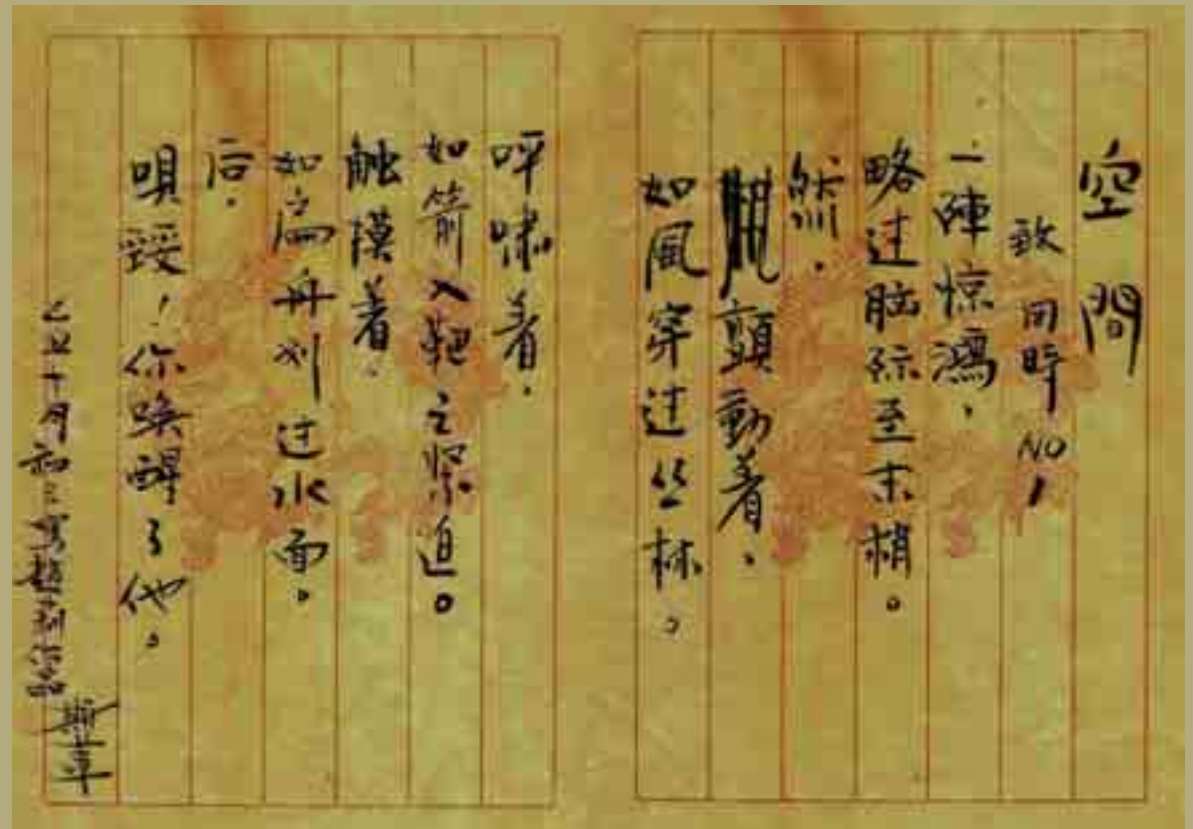 空間
致 同時 NO 1
一陣惊鴻，
略过脑际至末梢。
然，
顫動着，
如風穿过丛林。
呼嘯着，
如箭入靶之紧迫。
触摸着，
如扁舟划过水面。
后，
唄！你唤醒了他。
十月初